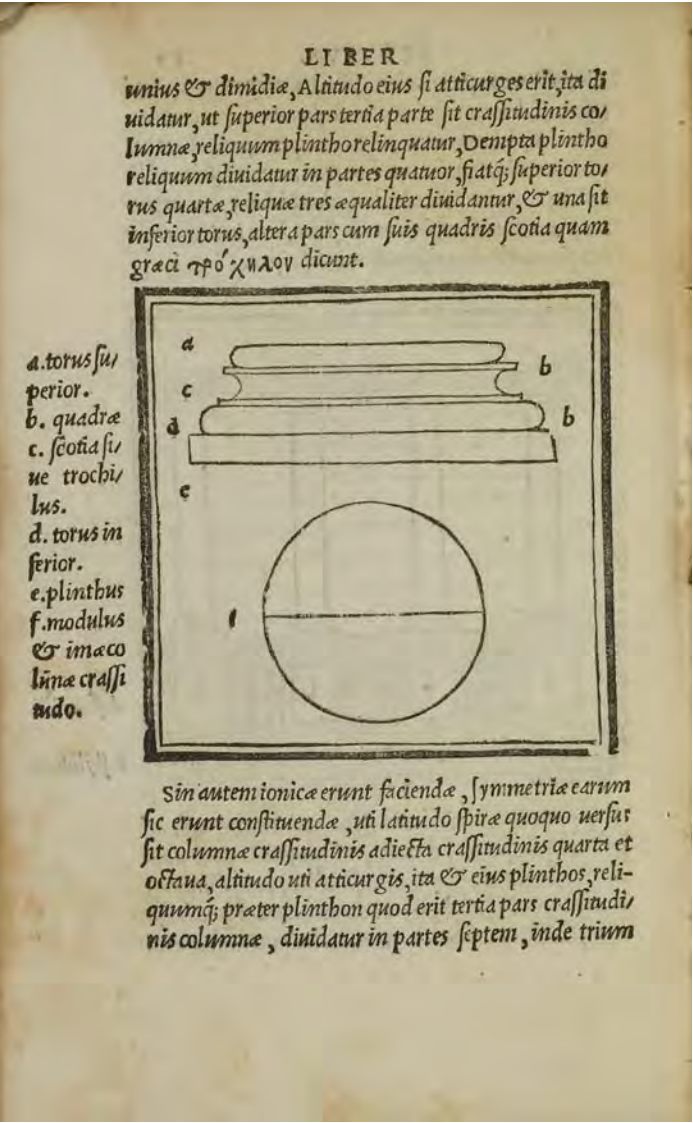 LIBER
unius & dimidiæ, Altitudo eius si atticurges erit, ita di
uidatur, ut superior pars tertia parte sit crassitudinis co/
lumnæ, reliquum plintho relinquatur, Dempta plintho
reliquum diuidatur in partes quatuor, fiatq; superior to/
rus quartæ, reliquæ tres æqualiter diuidantur, & una sit
inferior torus, altera pars cum suis quadris scotia quam
græci τρόχηλον dicunt.
a
b
c
d
b
e
f
a. torus su/
perior.
b. quadræ
c. scotia si/
ue trochi/
lus.
d. torus in
ferior.
e. plinthus
f. modulus
& imæ co
lũnæ crassi
tudo.
Sin autem ionicæ erunt faciendæ, symmetriæ earum
sic erunt constituendæ, uti latitudo spiræ quoquo uersus
sit columnæ crassitudinis adiecta crassitudinis quarta et
octaua, altitudo uti atticurgis, ita & eius plinthos, reli-
quumq; præter plinthon quod erit tertia pars crassitudi/
nis columnæ, diuidatur in partes septem, inde trium